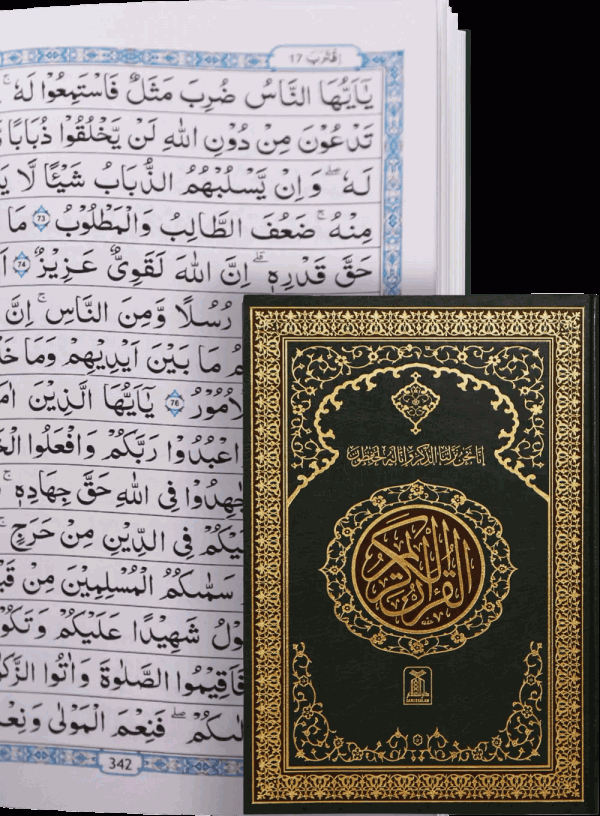 اِقْتَرَبَ 17
يٰۤاَيُّهَا النَّاسُ ضُرِبَ مَثَلٌ فَاسْتَمِعُوْا لَهٗ
تَدْعُوْنَ مِنْ دُوْنِ اللّٰهِ لَنْ يَّخْلُقُوْا ذُبَابًا
لَهٗ ۖ وَاِنْ يَّسْلُبْهُمُ الذُّبَابُ شَيْـًٔا لَّا
مِنْهُ ۚ ضَعُفَ الطَّالِبُ وَالْمَطْلُوْبُ 73 مَا
حَقَّ قَدْرِهٖ ۗ اِنَّ اللّٰهَ لَقَوِيٌّ عَزِيْزٌ 74
رُسُلًا وَّمِنَ النَّاسِ ۚ اِنَّ
مَا بَيْنَ اَيْدِيْهِمْ وَمَا
76 يٰۤاَيُّهَا الَّذِيْنَ
اعْبُدُوْا رَبَّكُمْ وَافْعَلُوا
جَاهِدُوْا فِي اللّٰهِ حَقَّ جِهَادِهٖ
فِي الدِّيْنِ مِنْ حَرَجٍ
سَمّٰىكُمُ الْمُسْلِمِيْنَ مِنْ
شَهِيْدًا عَلَيْكُمْ
فَاَقِيْمُوا الصَّلٰوةَ وَاٰتُوا
فَنِعْمَ الْمَوْلٰى
342
إنا نحن نزلنا الذكر وإنا له لحفظون
القرآن الكريم
DARUSSALAM